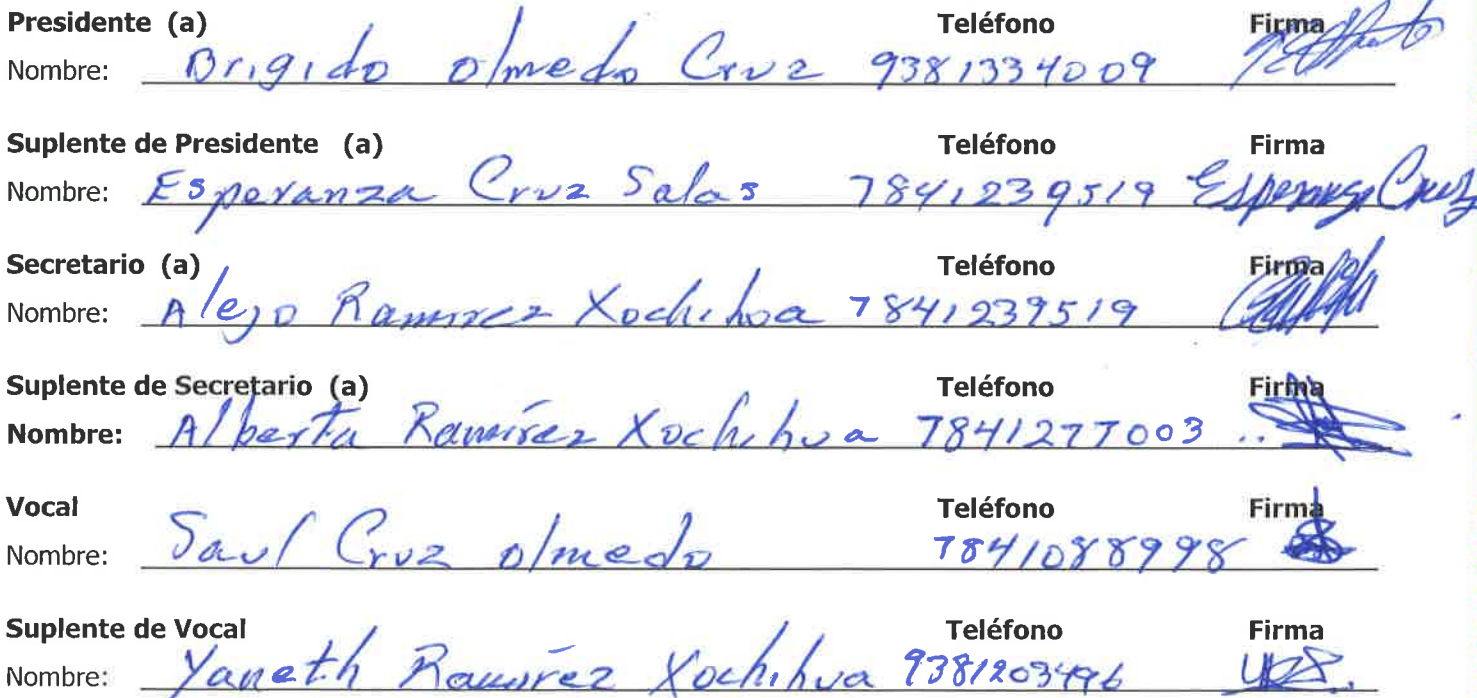 Presidente (a) Teléfono Firma
Nombre: Brigido Olmedo Cruz 9381334009
Suplente de Presidente (a) Teléfono Firma
Nombre: Esperanza Cruz Salas 7841239519 Esperanza Cruz
Secretario (a) Teléfono Firma
Nombre: Alejo Ramirez Xochihua 7841239519
Suplente de Secretario (a) Teléfono Firma
Nombre: Alberta Ramírez Xochihua 7841277003
Vocal Teléfono Firma
Nombre: Saul Cruz Olmedo 7841088998
Suplente de Vocal Teléfono Firma
Nombre: Yaneth Ramírez Xochihua 9381203496